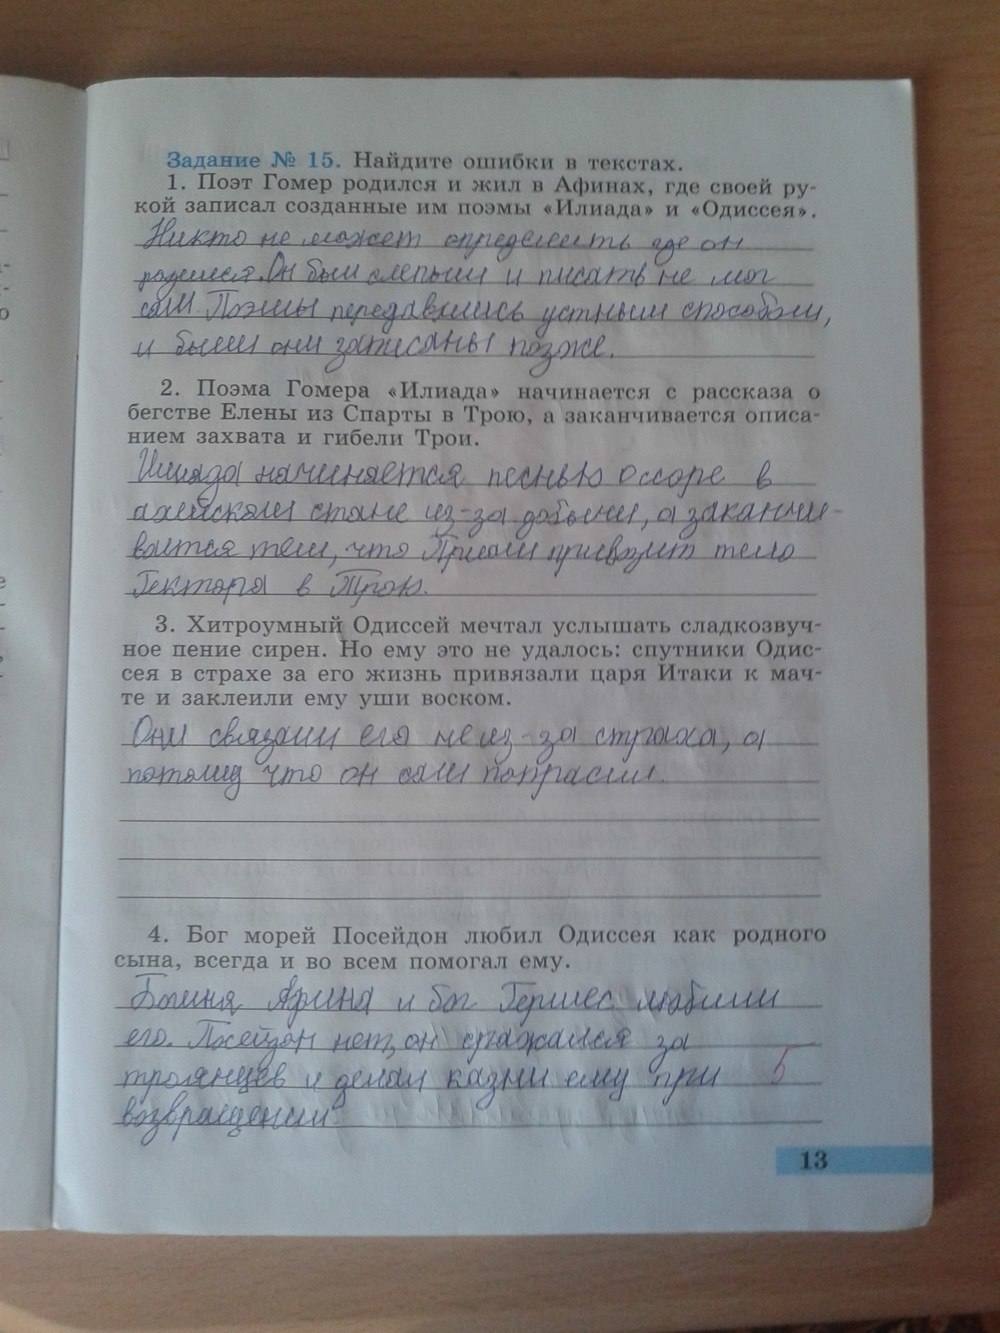 Задание № 15. Найдите ошибки в текстах.
1. Поэт Гомер родился и жил в Афинах, где своей ру-
кой записал созданные им поэмы «Илиада» и «Одиссея».
Никто не может определить где он
родился. Он был слепым и писать не мог
сам. Поэмы передавались устным способом,
и были они записаны позже.
2. Поэма Гомера «Илиада» начинается с рассказа о
бегстве Елены из Спарты в Трою, а заканчивается описа-
нием захвата и гибели Трои.
Илиада начинается песнью о ссоре в
ахейском стане из-за добычи, а заканчи-
вается тем, что Приам привозит тело
Гектора в Трою.
3. Хитроумный Одиссей мечтал услышать сладкозвуч-
ное пение сирен. Но ему это не удалось: спутники Одис-
сея в страхе за его жизнь привязали царя Итаки к мач-
те и заклеили ему уши воском.
Они связали его не из-за страха, а
потому что он сам попрасил.
4. Бог морей Посейдон любил Одиссея как родного
сына, всегда и во всем помогал ему.
Богиня Афина и бог Гермес любили
его. Посейдон нет, он сражался за
троянцев и делал казни ему при
возвращении
5
13